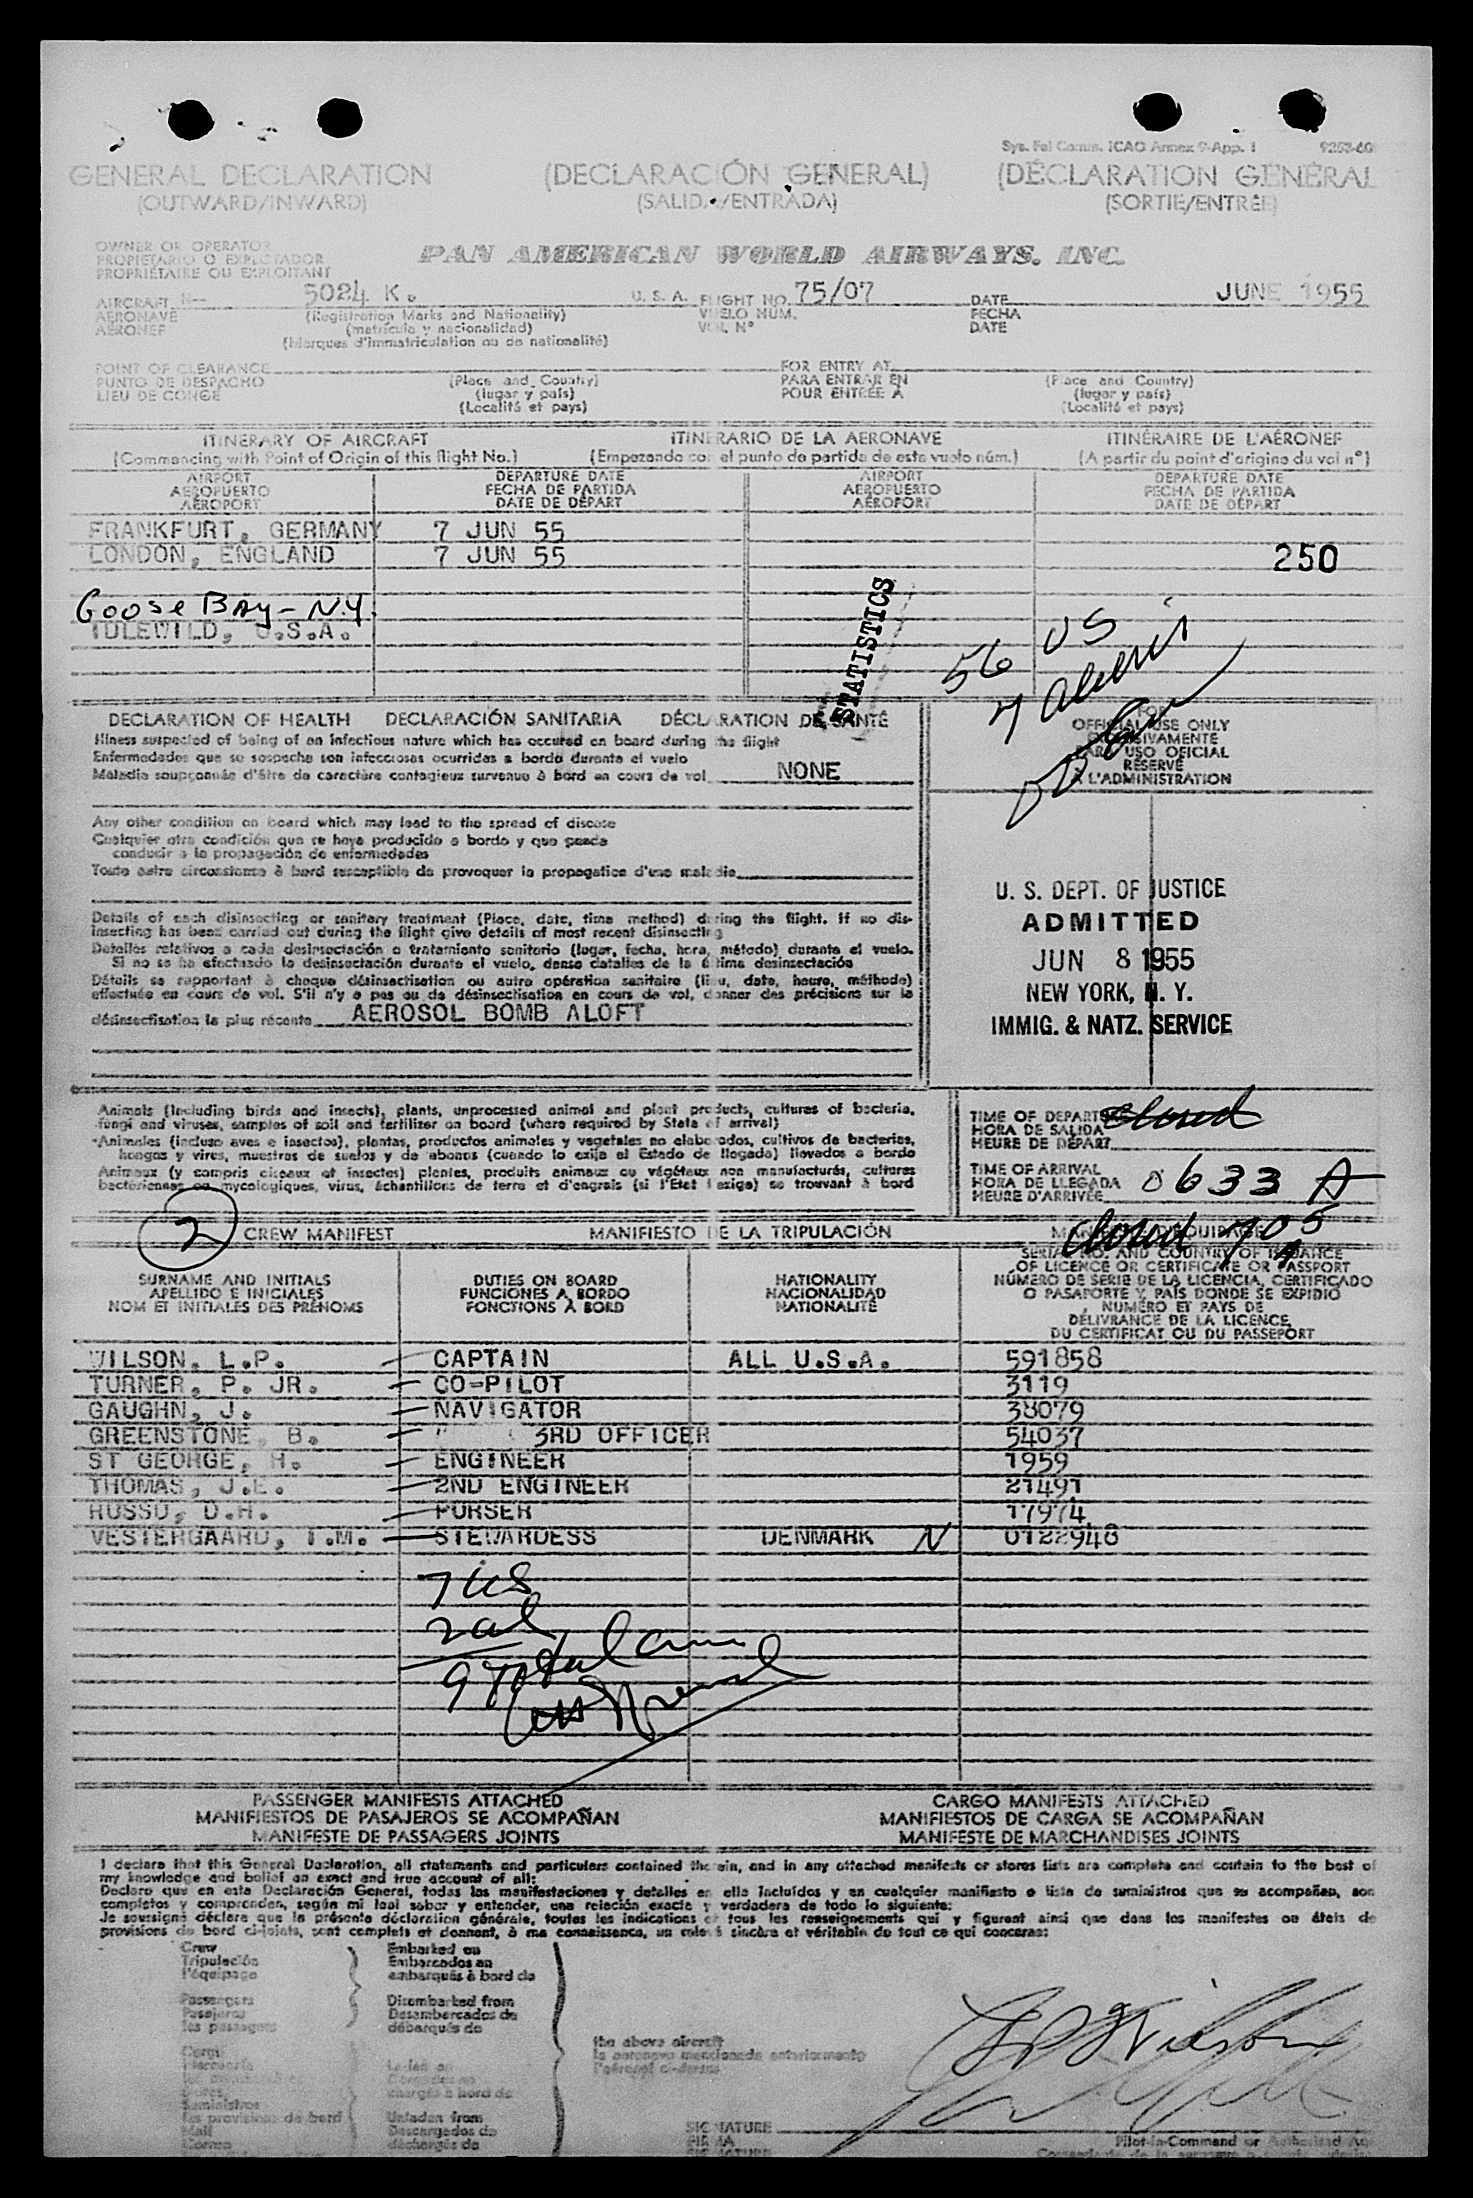 Sys. Fel Comm. ICAO Annex 9-App. 1 9253-60
GENERAL DECLARATION (DECLARACIÓN GENERAL) (DÉCLARATION GÉNÉRAL
(OUTWARD/INWARD) (SALIDA/ENTRADA) (SORTIE/ENTRÉE)
OWNER OR OPERATOR
PROPIETARIO O EXPLOTADOR
PROPRIÉTAIRE OU EXPLOITANT
PAN AMERICAN WORLD AIRWAYS, INC.
AIRCRAFT N— 5024 K. U. S. A. FLIGHT NO. 75/07 DATE JUNE 1955
AERONAVE (Registration Marks and Nationality) VUELO NÚM. FECHA
AÉRONEF (matrícula y nacionalidad) VOL Nº DATE
(Marques d'immatriculation ou de nationalité)
POINT OF CLEARANCE FOR ENTRY AT
PUNTO DE DESPACHO (Place and Country) PARA ENTRAR EN (Place and Country)
LIEU DE CONGÉ (lugar y país) POUR ENTRÉE À (lugar y país)
(Localité et pays) (Localité et pays)
ITINERARY OF AIRCRAFT ITINERARIO DE LA AERONAVE ITINÉRAIRE DE L'AÉRONEF
(Commencing with Point of Origin of this flight No.) (Empezando con el punto de partida de este vuelo núm.) (A partir du point d'origine du vol nº)
AIRPORT DEPARTURE DATE AIRPORT DEPARTURE DATE
AEROPUERTO FECHA DE PARTIDA AEROPUERTO FECHA DE PARTIDA
AÉROPORT DATE DE DÉPART AÉROPORT DATE DE DÉPART
FRANKFURT, GERMANY 7 JUN 55
LONDON, ENGLAND 7 JUN 55 250
Goose Bay - N.Y.
IDLEWILD, U.S.A.
STATISTICS
56 US
7 aliens
DECLARATION OF HEALTH DECLARACIÓN SANITARIA DÉCLARATION DE SANTÉ
Illness suspected of being of an infectious nature which has occured on board during the flight
Enfermedades que se sospecha son infecciosas ocurridas a bordo durante el vuelo
Maladie soupçonnée d'être de caractère contagieux survenue à bord en cours de vol NONE
FOR
OFFICIAL USE ONLY
EXCLUSIVAMENTE
PARA USO OFICIAL
RÉSERVÉ
À L'ADMINISTRATION
Any other condition on board which may lead to the spread of disease
Cualquier otra condición que se haya producido a bordo y que pueda
conducir a la propagación de enfermedades
Toute autre circonstance à bord susceptible de provoquer la propagation d'une maladie
Details of each disinsecting or sanitary treatment (Place, date, time method) during the flight. If no dis-
insecting has been carried out during the flight give details of most recent disinsecting
Detalles relativos a cada desinsectación o tratamiento sanitario (lugar, fecha, hora, método) durante el vuelo.
Si no se ha efectuado la desinsectación durante el vuelo, dense detalles de la última desinsectación
Détails se rapportant à chaque désinsectisation ou autre opération sanitaire (lieu, date, heure, méthode)
effectuée en cours de vol. S'il n'y a pas eu de désinsectisation en cours de vol, donner des précisions sur la
désinsectisation la plus récente AEROSOL BOMB ALOFT
U. S. DEPT. OF JUSTICE
ADMITTED
JUN 8 1955
NEW YORK, N. Y.
IMMIG. & NATZ. SERVICE
Animals (Including birds and insects), plants, unprocessed animal and plant products, cultures of bacteria,
fungi and viruses, samples of soil and fertilizer on board (where required by State of arrival)
Animales (incluso aves e insectos), plantas, productos animales y vegetales no elaborados, cultivos de bacterias,
hongos y virus, muestras de suelos y de abonos (cuando lo exija el Estado de llegada) llevados a bordo
Animaux (y compris oiseaux et insectes) plantes, produits animaux ou végétaux non manufacturés, cultures
bactériennes ou mycologiques, virus, échantillons de terre et d'engrais (si l'Etat l'exige) se trouvant à bord
TIME OF DEPARTURE closed
HORA DE SALIDA
HEURE DE DÉPART
TIME OF ARRIVAL
HORA DE LLEGADA 0633 A
HEURE D'ARRIVÉE
closed 705 A
2 CREW MANIFEST MANIFIESTO DE LA TRIPULACIÓN
SURNAME AND INITIALS DUTIES ON BOARD NATIONALITY SERIAL NO. AND COUNTRY OF ISSUANCE
APELLIDO E INICIALES FUNCIONES A BORDO NACIONALIDAD OF LICENCE OR CERTIFICATE OR PASSPORT
NOM ET INITIALES DES PRÉNOMS FONCTIONS À BORD NATIONALITÉ NÚMERO DE SERIE DE LA LICENCIA, CERTIFICADO
O PASAPORTE Y PAÍS DONDE SE EXPIDIÓ
NUMÉRO ET PAYS DE
DÉLIVRANCE DE LA LICENCE,
DU CERTIFICAT OU DU PASSEPORT
WILSON, L.P. CAPTAIN ALL U.S.A. 591858
TURNER, P. JR. CO-PILOT 3119
GAUGHN, J. NAVIGATOR 38079
GREENSTONE, B. " 3RD OFFICER 54037
ST GEORGE, H. ENGINEER 1959
THOMAS, J.E. 2ND ENGINEER 21491
RUSSO, D.H. PURSER 17974
VESTERGAARD, I.M. STEWARDESS DENMARK N 0122948
7 US
2 al
9 total
PASSENGER MANIFESTS ATTACHED CARGO MANIFESTS ATTACHED
MANIFIESTOS DE PASAJEROS SE ACOMPAÑAN MANIFIESTOS DE CARGA SE ACOMPAÑAN
MANIFESTE DE PASSAGERS JOINTS MANIFESTE DE MARCHANDISES JOINTS
I declare that this General Declaration, all statements and particulars contained therein, and in any attached manifests or stores lists are complete and contain to the best of
my knowledge and belief an exact and true account of all:
Declaro que en esta Declaración General, todas las manifestaciones y detalles en ella incluídos y en cualquier manifiesto o lista de suministros que se acompañan, son
completos y comprenden, según mi leal saber y entender, una relación exacta y verdadera de todo lo siguiente:
Je soussigné déclare que la présente déclaration générale, toutes les indications et tous les renseignements qui y figurent ainsi que dans les manifestes ou états de
provisions de bord ci-joints, sont complets et donnent, à ma connaissance, un relevé sincère et véritable de tout ce qui concerne:
Crew Embarked on
Tripulación Embarcados en
l'équipage embarqués à bord de
Passengers Disembarked from
Pasajeros Desembarcados de
les passagers débarqués de
the above aircraft
la aeronave mencionada anteriormente
l'aéronef ci-dessus
Cargo
Laden on
chargés à bord de
Suministros
les provisions de bord Unladen from
Mail Descargados de
Correo déchargés de
LP Wilson
SIGNATURE
FIRMA
SIGNATURE
Pilot-in-Command or Authorized Ag